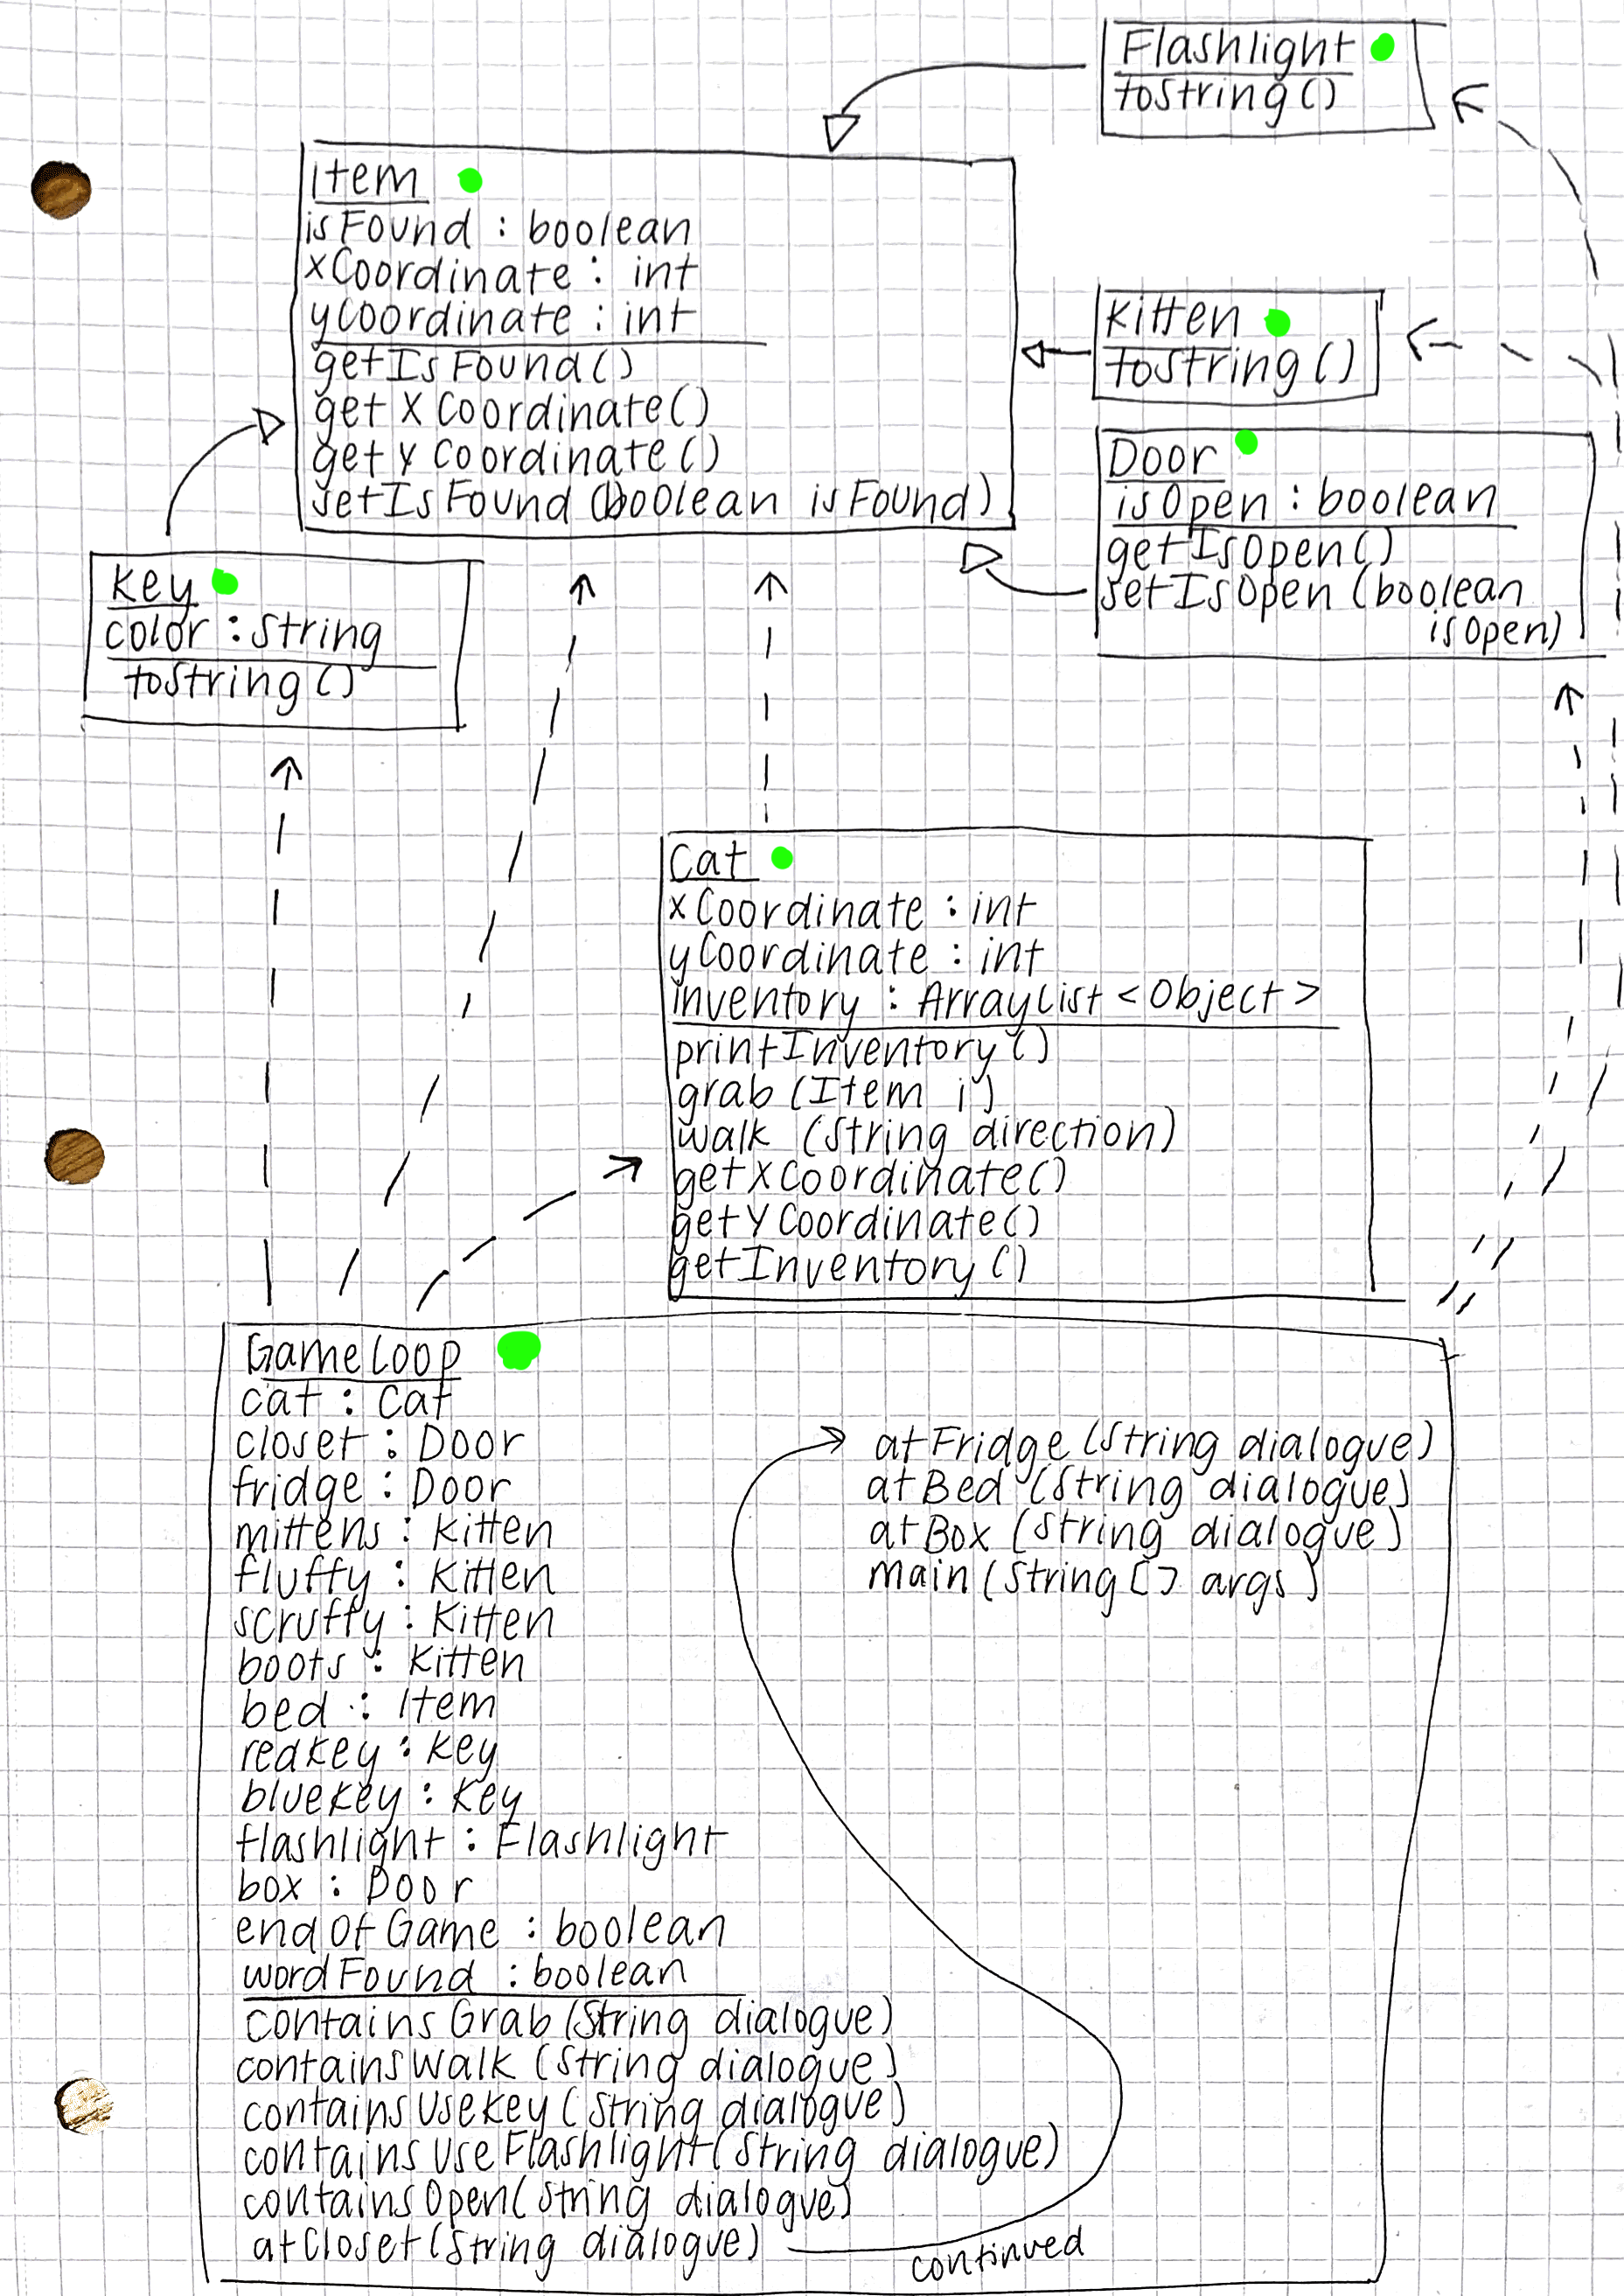 Flashlight
toString()
Item
isFound : boolean
xCoordinate : int
yCoordinate : int
getIsFound()
getXCoordinate()
getYCoordinate()
setIsFound(boolean isFound)
Kitten
toString()
Door
isOpen : boolean
getIsOpen()
setIsOpen(boolean
isOpen)
Key
color : String
toString()
Cat
xCoordinate : int
yCoordinate : int
inventory : ArrayList<Object>
printInventory()
grab(Item i)
walk (String direction)
getXCoordinate()
getYCoordinate()
getInventory()
GameLoop
cat : Cat
closet : Door
fridge : Door
mittens : Kitten
fluffy : Kitten
scruffy : Kitten
boots : Kitten
bed : Item
redKey : Key
blueKey : Key
flashlight : Flashlight
box : Door
endOfGame : boolean
wordFound : boolean
containsGrab(String dialogue)
containsWalk (String dialogue)
containsUseKey(String dialogue)
containsUseFlashlight(String dialogue)
containsOpen(String dialogue)
atCloset(String dialogue)
continued
atFridge(String dialogue)
atBed (String dialogue)
atBox (String dialogue)
main(String[] args)